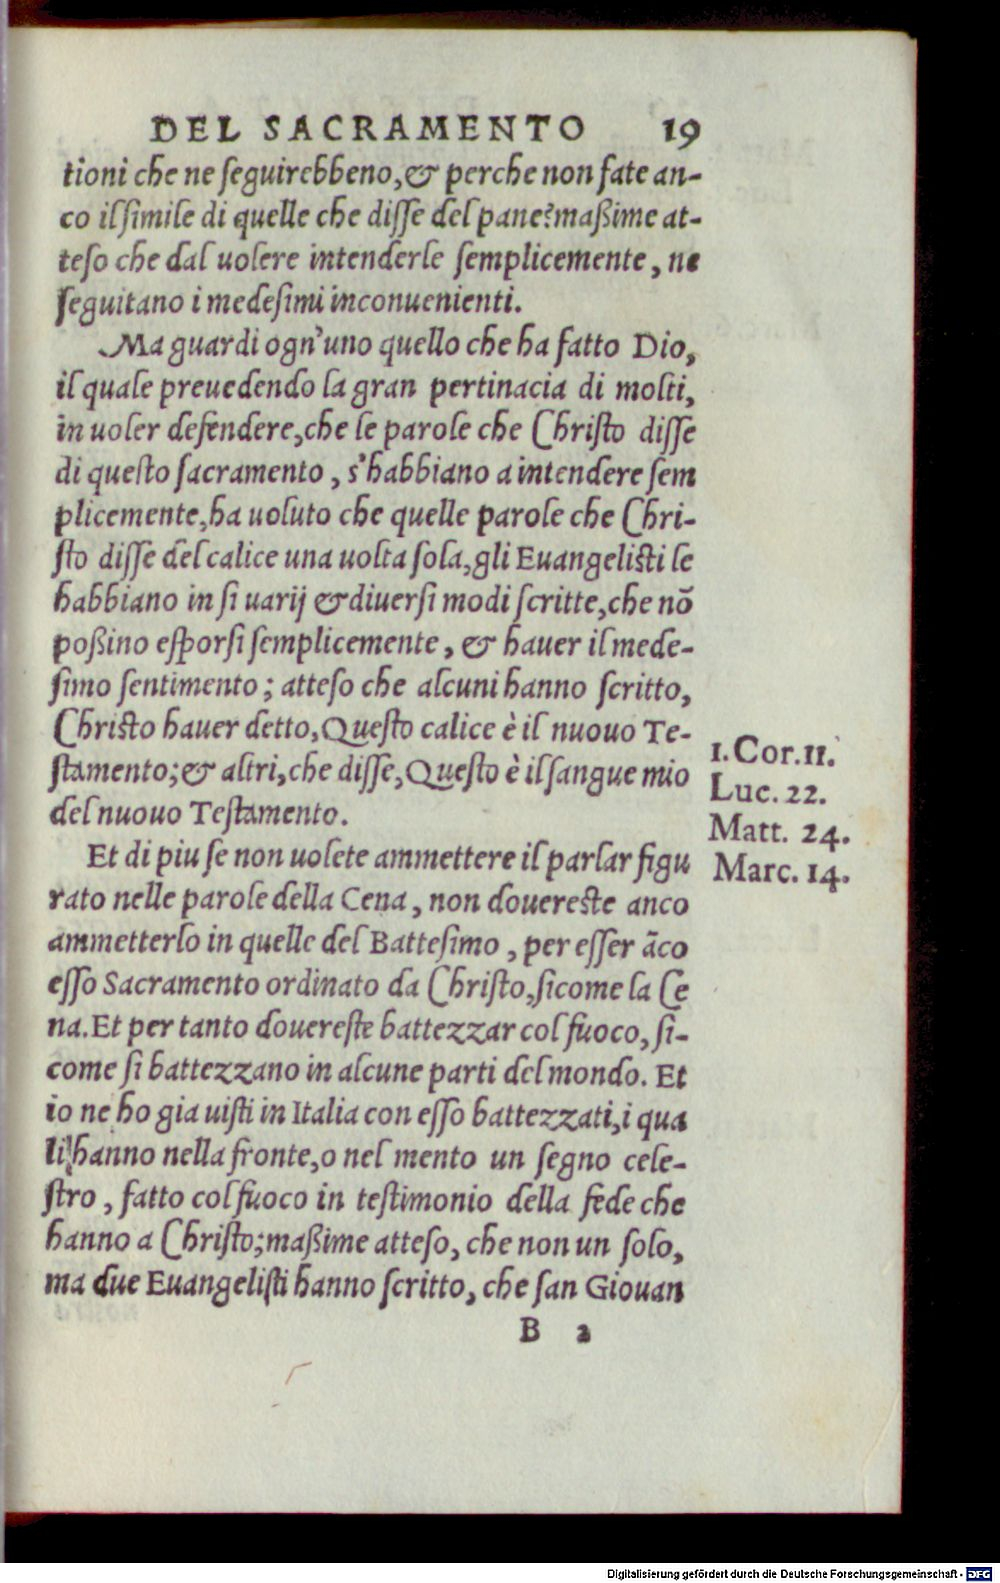 DEL SACRAMENTO 19
tioni che ne ſeguirebbeno, & perche non fate an-
co il ſimile di quelle che diſſe del pane? maßime at-
teſo che dal uolere intenderle ſemplicemente, ne
ſeguitano i medeſimi inconuenienti.
Ma guardi ogn'uno quello che ha fatto Dio,
il quale preuedendo la gran pertinacia di molti,
in uoler defendere, che le parole che Chriſto diſſe
di queſto ſacramento, s'habbiano a intendere ſem
plicemente, ha uoluto che quelle parole che Chri-
ſto diſſe del calice una uolta ſola, gli Euangeliſti le
habbiano in ſi uarij & diuerſi modi ſcritte, che nō
poßino eſporſi ſemplicemente, & hauer il mede-
ſimo ſentimento; atteſo che alcuni hanno ſcritto,
Chriſto hauer detto, Queſto calice è il nuouo Te-
ſtamento; & altri, che diſſe, Queſto è il ſangue mio
del nuouo Teſtamento.
1. Cor. 11.
Luc. 22.
Matt. 24.
Marc. 14.
Et di piu ſe non uolete ammettere il parlar figu
rato nelle parole della Cena, non douereſte anco
ammetterlo in quelle del Batteſimo, per eſſer āco
eſſo Sacramento ordinato da Chriſto, ſicome la Ce
na. Et per tanto douereſte battezzar col fuoco, ſi-
come ſi battezzano in alcune parti del mondo. Et
io ne ho gia uiſti in Italia con eſſo battezzati, i qua
li hanno nella fronte, o nel mento un ſegno cele-
ſtro, fatto col fuoco in teſtimonio della fede che
hanno a Chriſto; maßime atteſo, che non un ſolo,
ma due Euangeliſti hanno ſcritto, che ſan Giouan
B 2
Digitalisierung gefördert durch die Deutsche Forschungsgemeinschaft - DFG